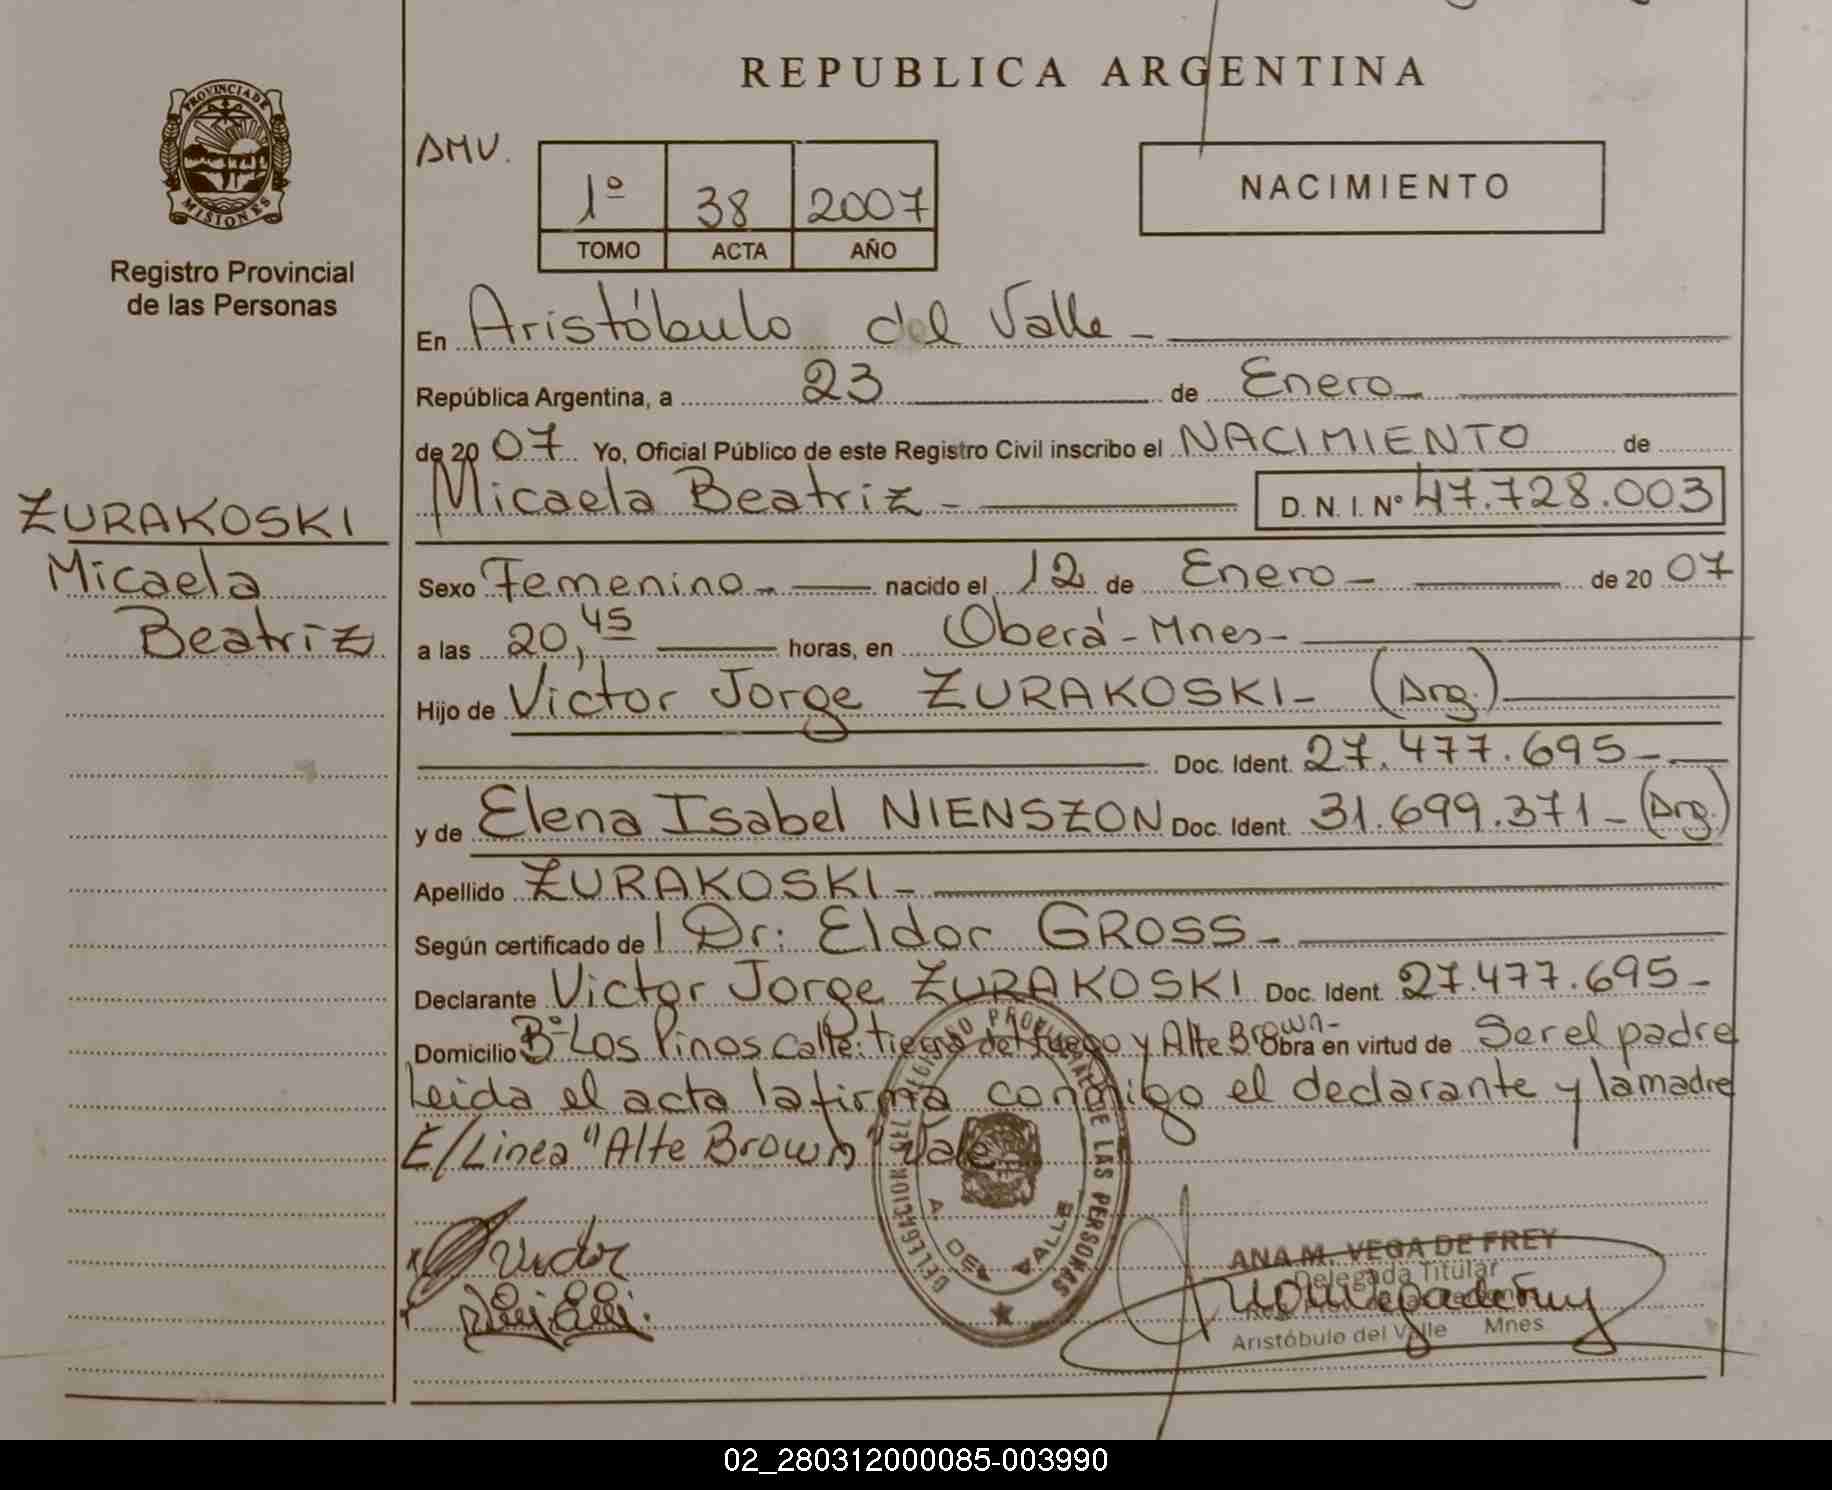 REPUBLICA ARGENTINA
PROVINCIA DE
MISIONES
Registro Provincial
de las Personas
AMV.
1º 38 2007
TOMO ACTA AÑO
NACIMIENTO
En Aristóbulo del Valle -
República Argentina, a 23 de Enero
de 2007 Yo, Oficial Público de este Registro Civil inscribo el NACIMIENTO de
Micaela Beatriz - D. N. I. Nº 47.728.003
ZURAKOSKI
Micaela
Beatriz
Sexo Femenino - nacido el 12 de Enero - de 2007
a las 20,45 horas, en Oberá - Mnes -
Hijo de Victor Jorge ZURAKOSKI - (Arg.)
Doc. Ident. 27.477.695 -
y de Elena Isabel NIENSZON Doc. Ident. 31.699.371 - (Arg.)
Apellido ZURAKOSKI -
Según certificado de Dr. Eldor GROSS -
Declarante Victor Jorge ZURAKOSKI Doc. Ident. 27.477.695 -
Domicilio Bº Los Pinos calle: tierra del fuego y Alte Brown - Obra en virtud de Ser el padre
Leida el acta la firma conmigo el declarante y la madre
E/Linea "Alte Brown" Vale
DELEGACION DEL REGISTRO PROVINCIAL DE LAS PERSONAS
A. DEL VALLE
Victor
ANA M. VEGA DE FREY
Delegada Titular
Aristóbulo del Valle Mnes
02_280312000085-003990